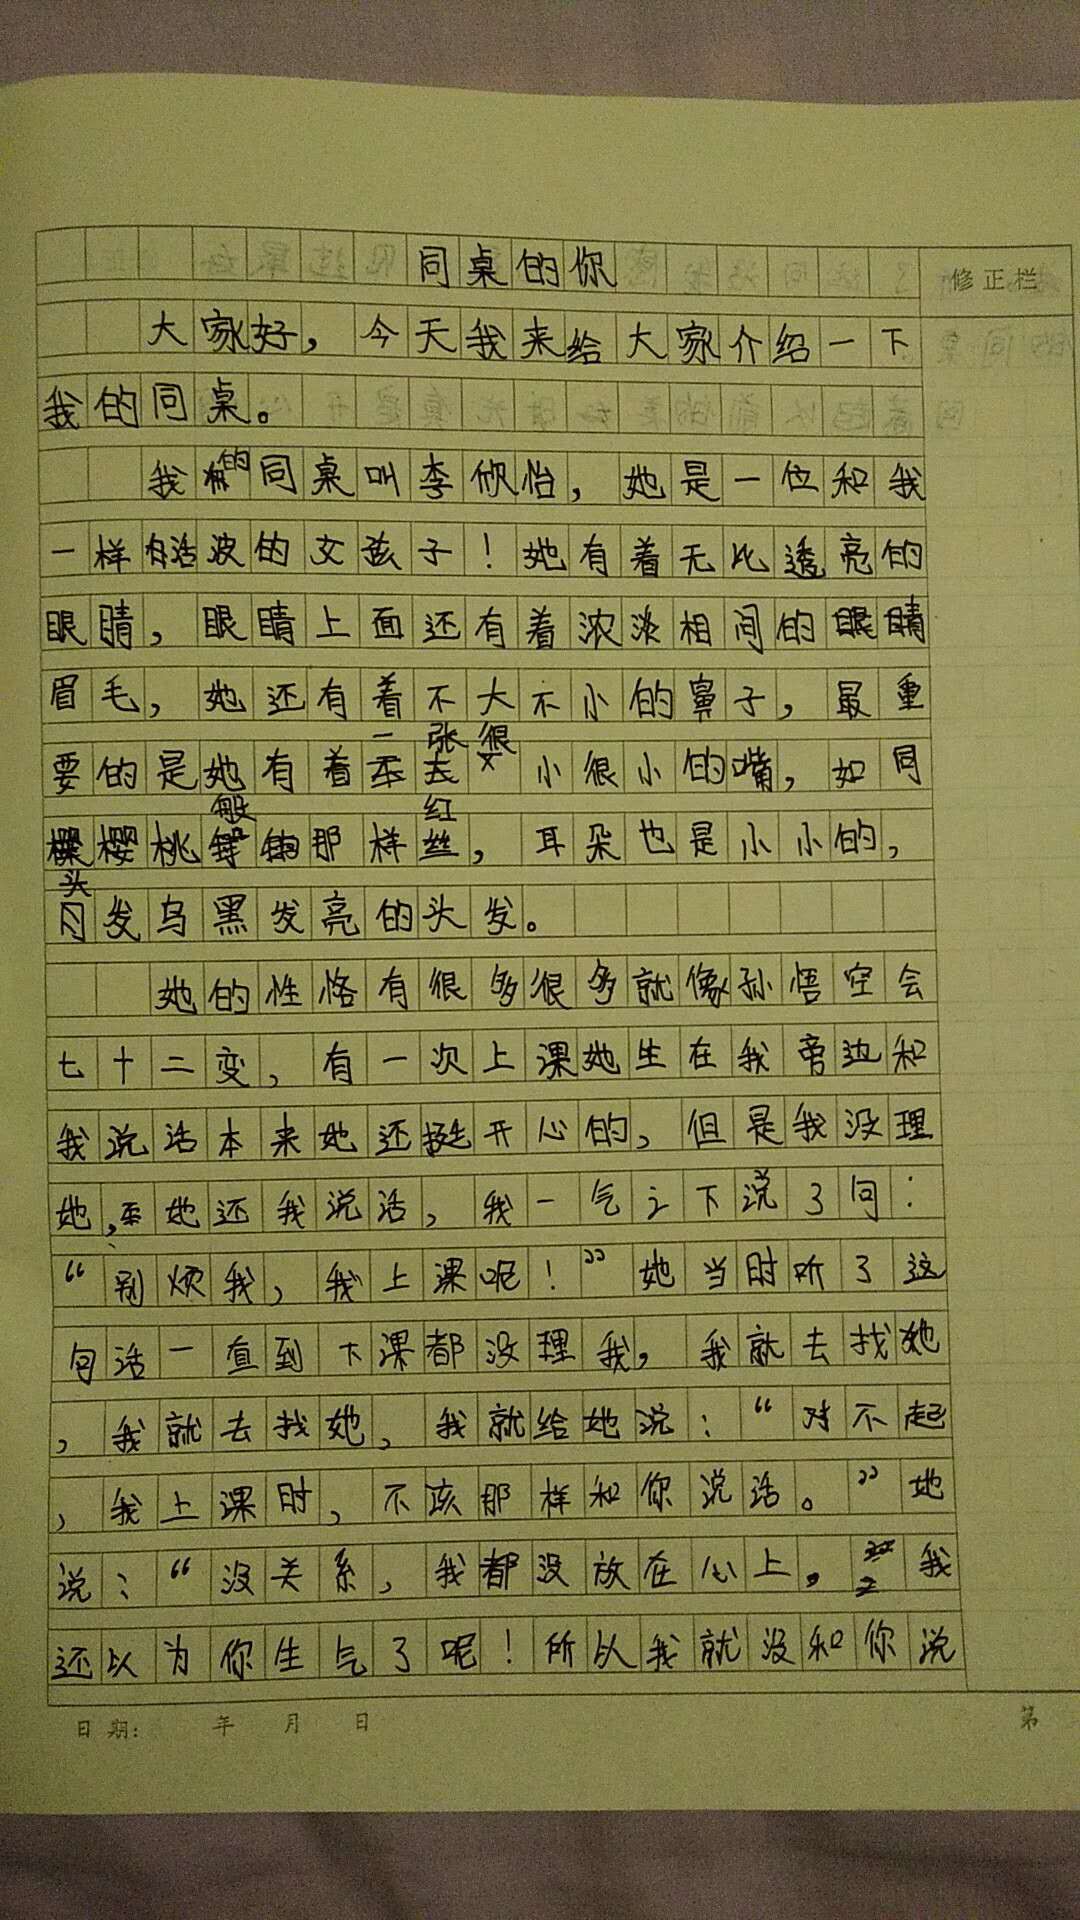 同桌的你
修正栏
大家好，今天我来给大家介绍一下
我的同桌。
我的同桌叫李欣怡，她是一位和我
一样活波的女孩子！她有着无比透亮的
眼睛，眼睛上面还有着浓淡相间的
眉毛，她还有着不大不小的鼻子，最重
要的是她有着一张很小很小的嘴，如同
樱桃般那样红，耳朵也是小小的，
头发乌黑发亮的头发。
她的性恪有很多很多就像孙悟空会
七十二变，有一次上课她生在我旁边和
我说话本来她还挺开心的，但是我没理
她，她还我说话，我一气之下说了句：
“别烦我，我上课呢！”她当时听了这
句话一直到下课都没理我，我就去找她
，我就去找她，我就给她说：“对不起
，我上课时，不该那样和你说话。”她
说：“没关系，我都没放在心上。”我
还以为你生气了呢！所以我就没和你说
日期： 年 月 日
第